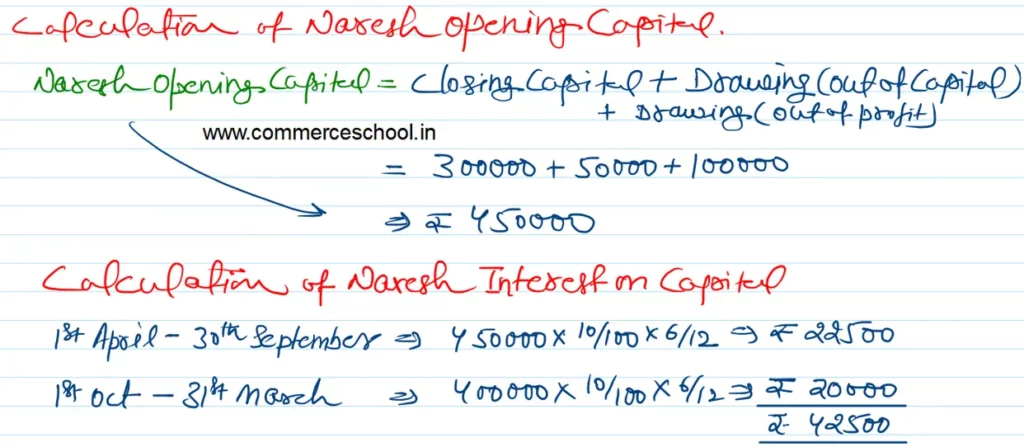 Calculation of Naresh Opening Capital.
Naresh Opening Capital = Closing Capital + Drawing (Out of Capital)
+ Drawing (Out of profit)
www.commerceschool.in
= 300000 + 50000 + 100000
⇒ ₹ 450000
Calculation of Naresh Interest on Capital
1st April - 30th September ⇒ 450000 x 10/100 x 6/12 ⇒ ₹ 22500
1st Oct - 31st March ⇒ 400000 x 10/100 x 6/12 ⇒ ₹ 20000
₹ 42500